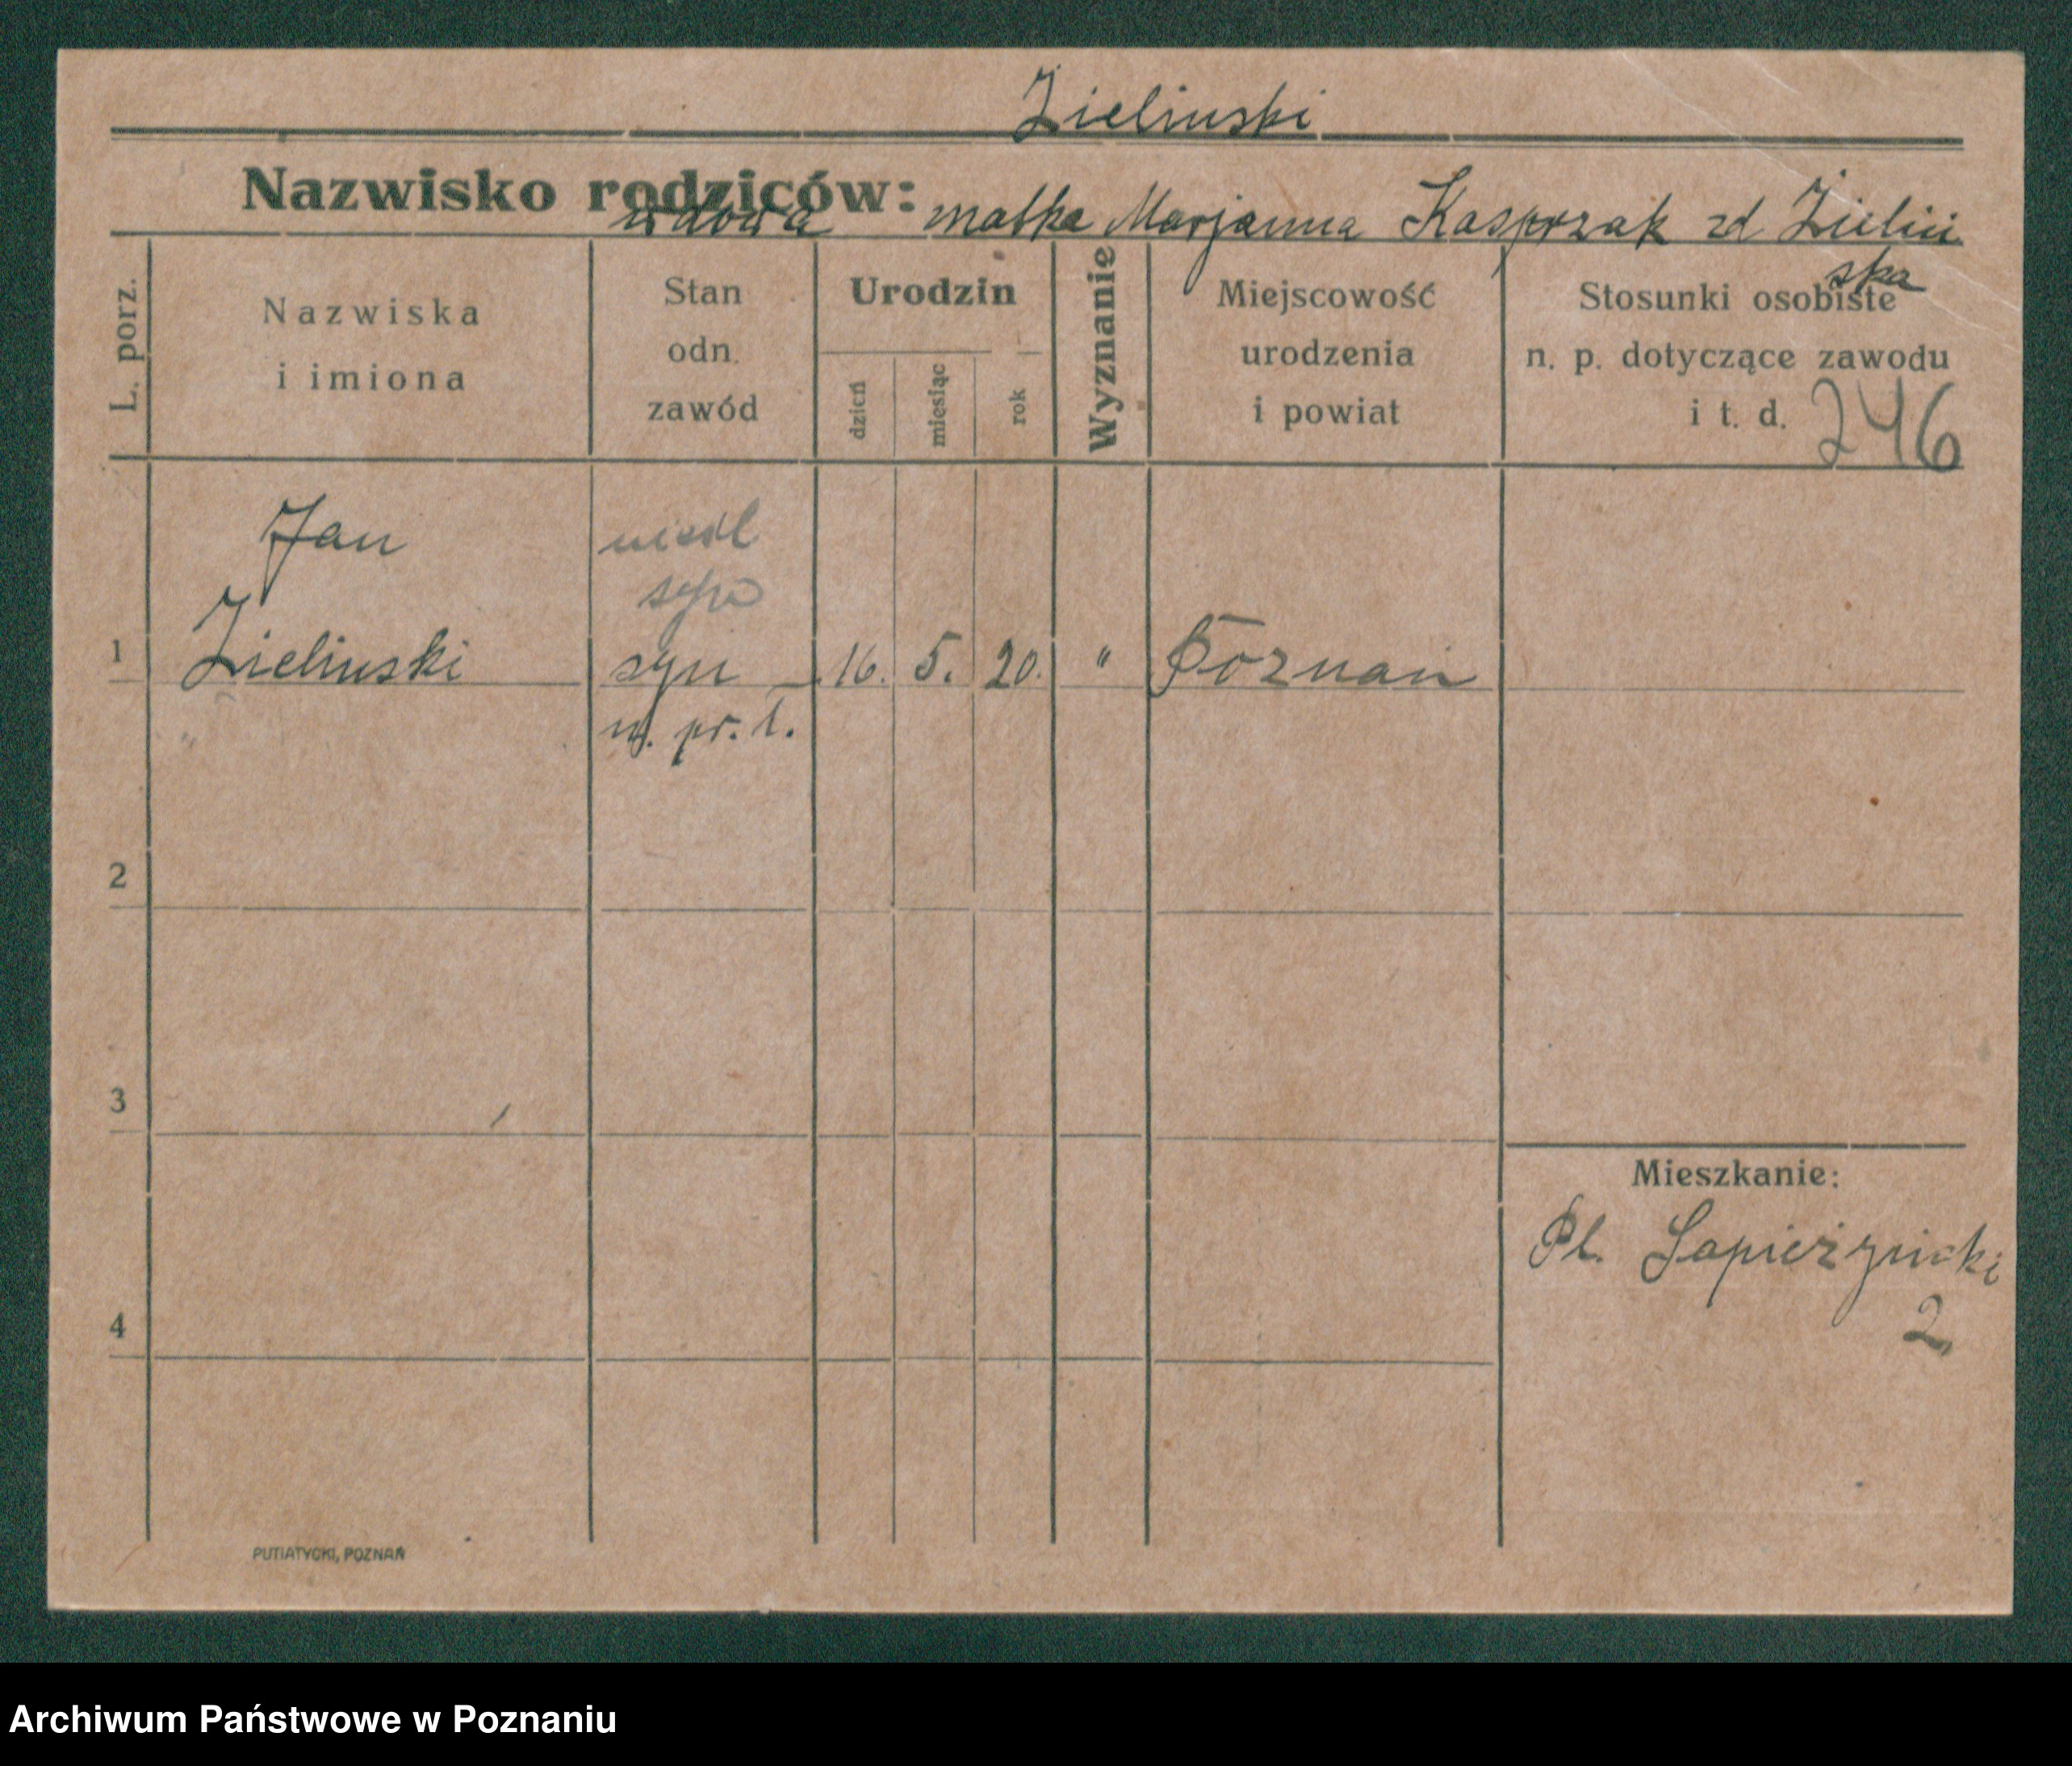 Zielinski
Nazwisko rodziców:
wdowa matka Marjanna Kasprzak zd Zieliń
ska
L. porz.
Nazwiska
i imiona
Stan
odn.
zawód
Urodzin
dzień
miesiąc
rok
Wyznanie
Miejscowość
urodzenia
i powiat
Stosunki osobiste
n. p. dotyczące zawodu
i t. d. 246
Jan
1 Zielinski syn 16. 5. 20. " Poznań
n. pr. l.
2
3
4
Mieszkanie:
Pl. Sapieżyński
2
PUTIATYCKI, POZNAŃ
Archiwum Państwowe w Poznaniu